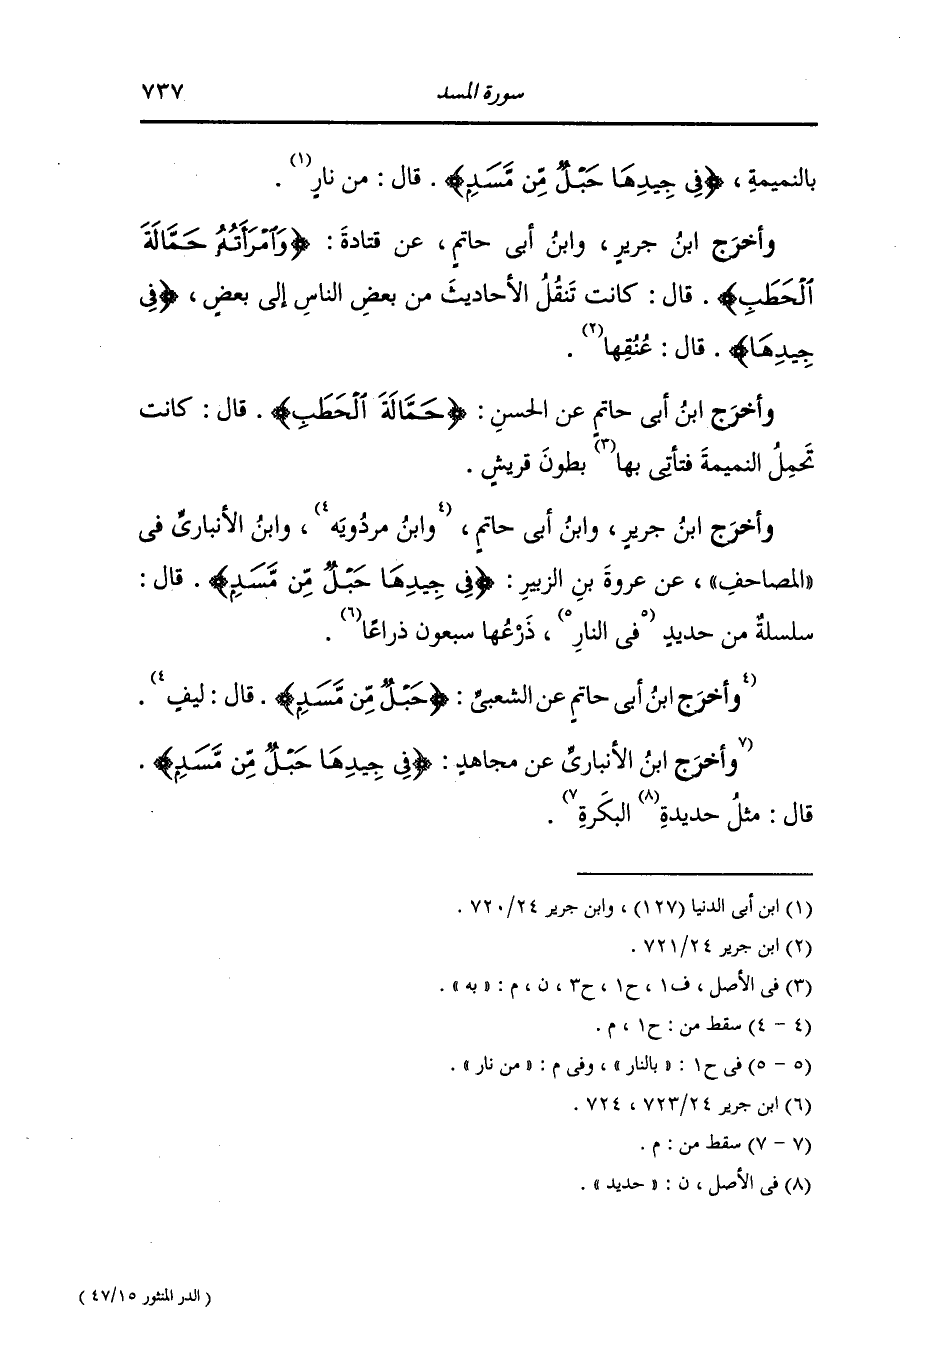 سورة المسد ٧٣٧
بالنميمةِ ، ﴿فِى جِيدِهَا حَبْلٌ مِّن مَّسَدٍ﴾ . قال : من نارٍ(١) .
وأخرَج ابنُ جريرٍ ، وابنُ أبى حاتمٍ ، عن قتادةَ : ﴿وَٱمْرَأَتُهُ حَمَّالَةَ
ٱلْحَطَبِ﴾ . قال : كانت تَنقُلُ الأحاديثَ من بعضِ الناسِ إلى بعضٍ ، ﴿فِى
جِيدِهَا﴾ . قال : عُنُقِها(٢) .
وأخرَج ابنُ أبى حاتمٍ عن الحسنِ : ﴿حَمَّالَةَ ٱلْحَطَبِ﴾ . قال : كانت
تَحمِلُ النميمةَ فتأتِى بها(٣) بطونَ قريشٍ .
وأخرَج ابنُ جريرٍ ، وابنُ أبى حاتمٍ ، (٤وابنُ مردُويَه٤) ، وابنُ الأنبارىِّ فى
«المصاحفِ» ، عن عروةَ بنِ الزبيرِ : ﴿فِى جِيدِهَا حَبْلٌ مِّن مَّسَدٍ﴾ . قال :
سلسلةٌ من حديدٍ (٥فى النارِ٥) ، ذَرْعُها سبعون ذراعًا(٦) .
(٤وأخرَج ابنُ أبى حاتمٍ عن الشعبىِّ : ﴿حَبْلٌ مِّن مَّسَدٍ﴾ . قال : ليفٍ٤) .
(٧وأخرَج ابنُ الأنبارىِّ عن مجاهدٍ : ﴿فِى جِيدِهَا حَبْلٌ مِّن مَّسَدٍ﴾ .
قال : مثلُ حديدةِ(٨) البكَرةِ٧) .
(١) ابن أبى الدنيا (١٢٧) ، وابن جرير ٧٢٠/٢٤ .
(٢) ابن جرير ٧٢١/٢٤ .
(٣) فى الأصل ، ف١ ، ح١ ، ح٣ ، ن ، م : « به » .
(٤ - ٤) سقط من : ح١ ، م .
(٥ - ٥) فى ح١ : « بالنار » ، وفى م : « من نار » .
(٦) ابن جرير ٧٢٣/٢٤ ، ٧٢٤ .
(٧ - ٧) سقط من : م .
(٨) فى الأصل ، ن : « حديد » .
( الدر المنثور ٤٧/١٥ )